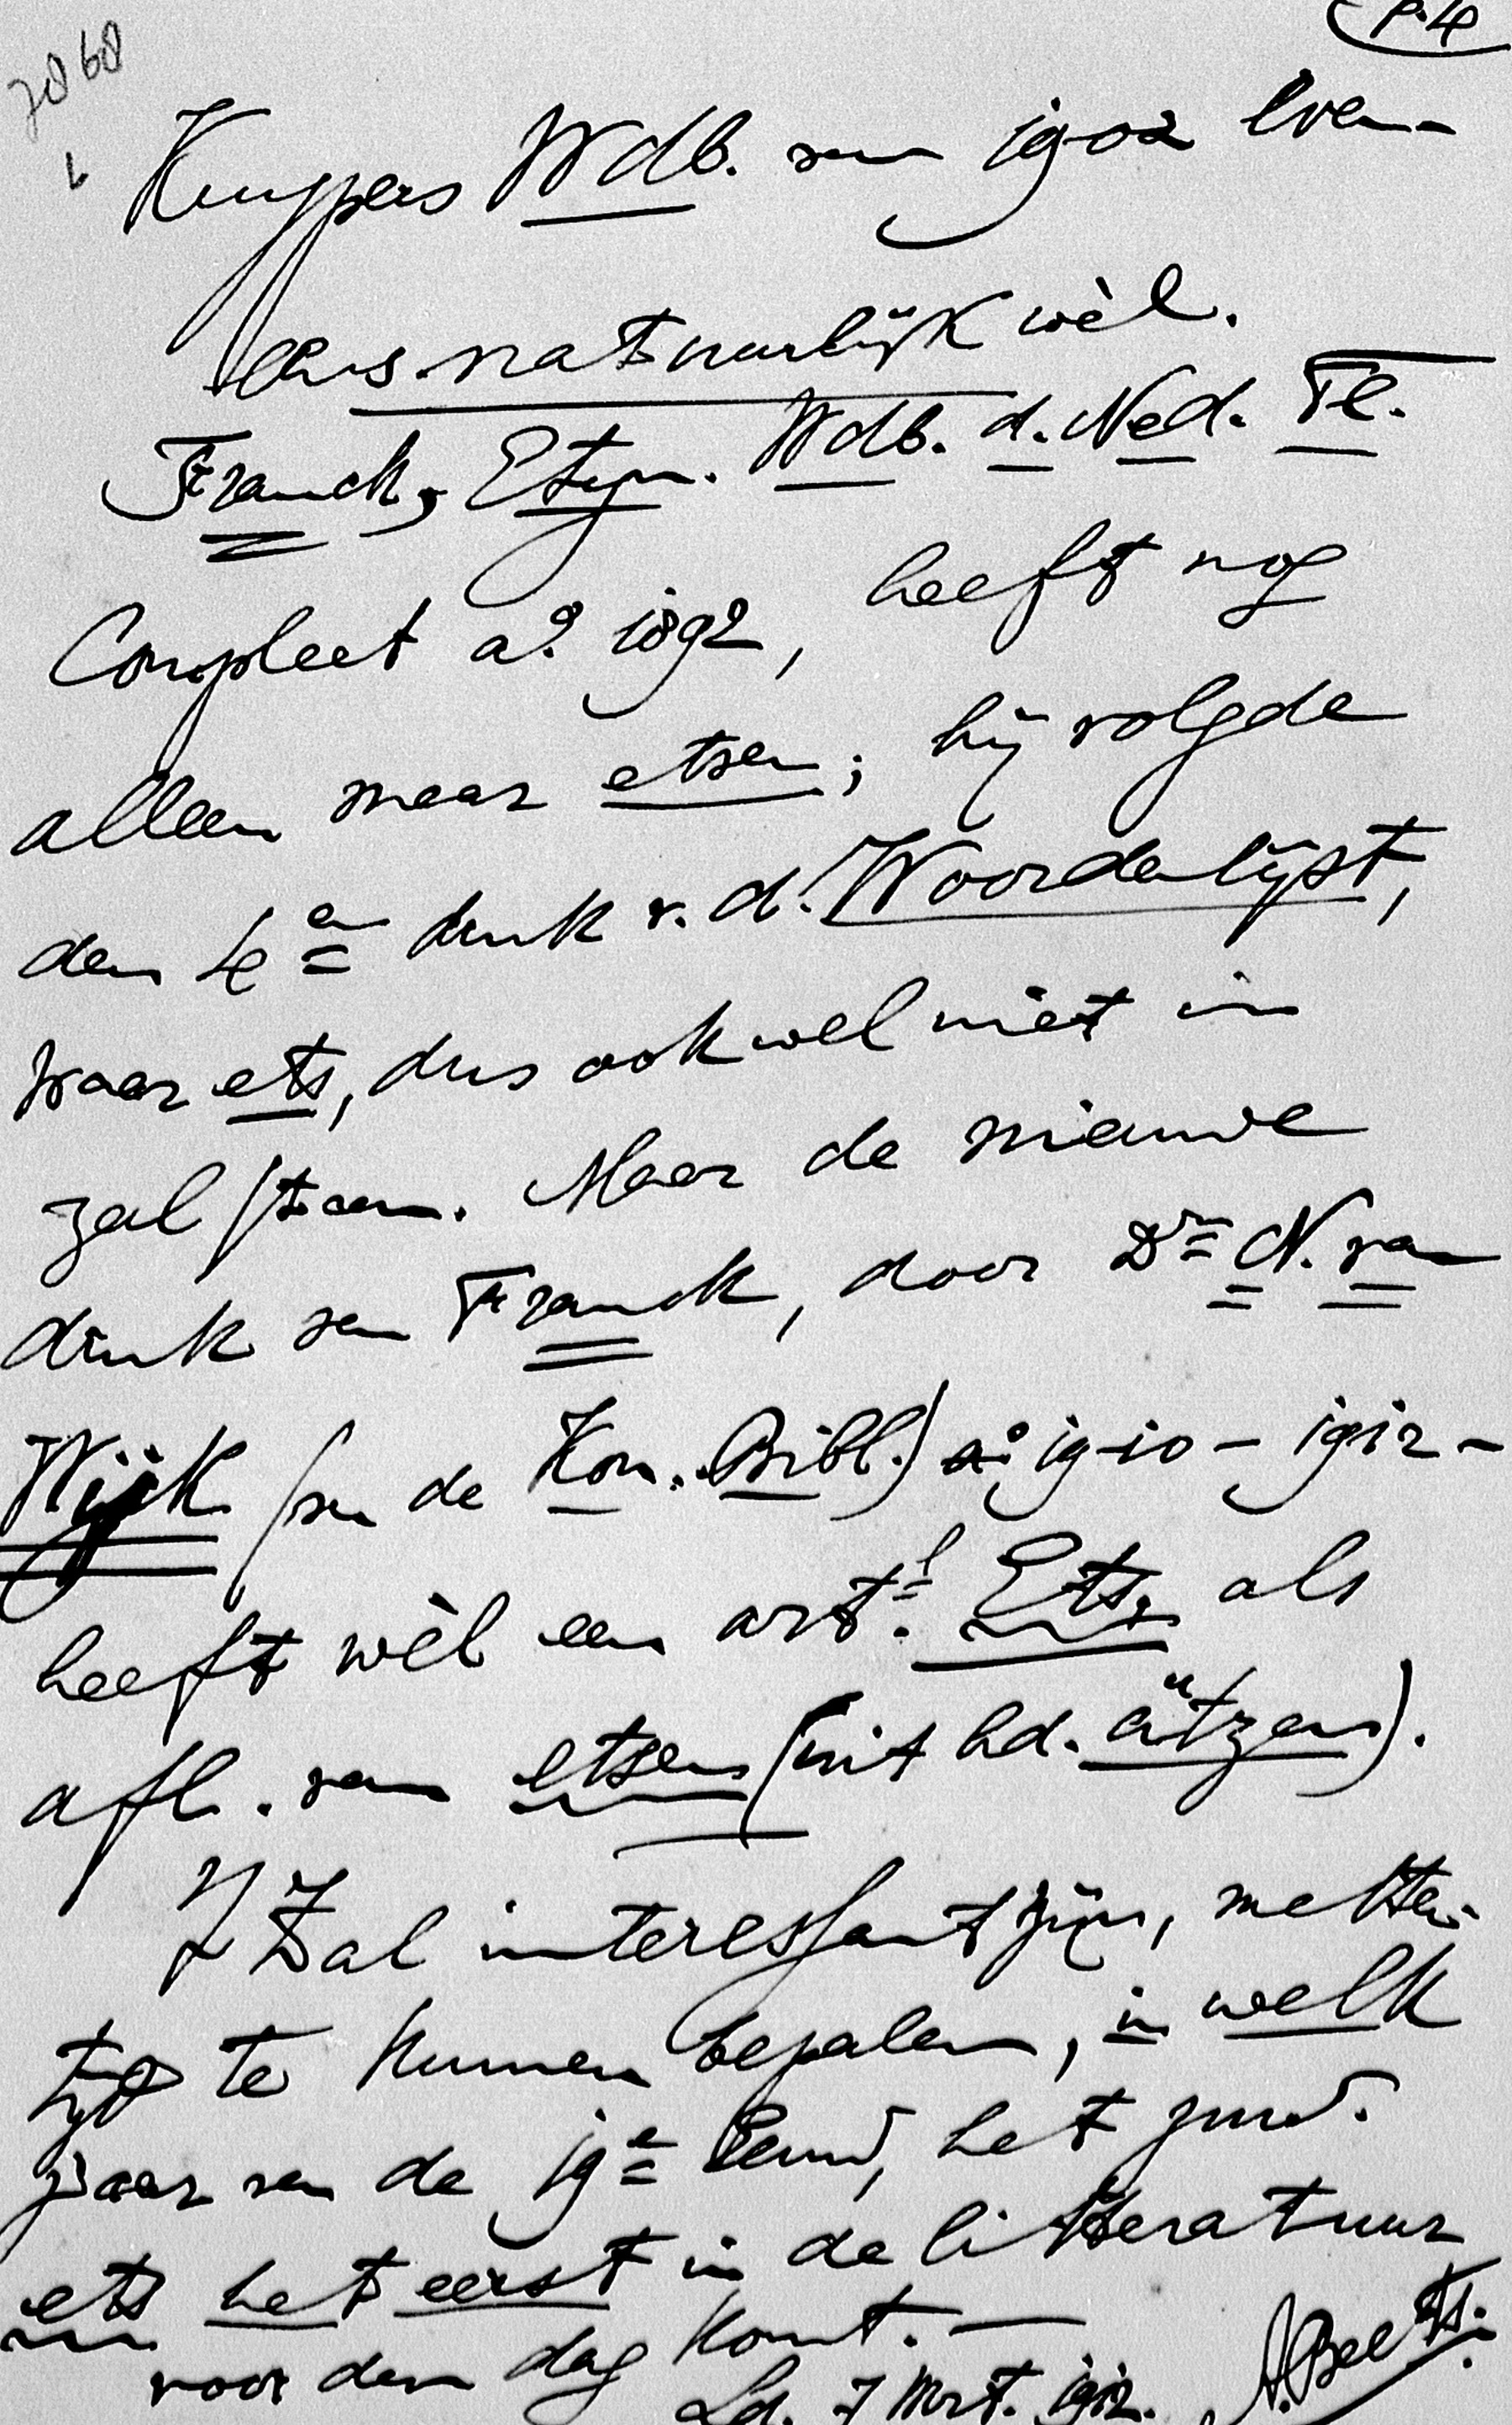 p. 4
7868
Kuypers Wdb. van 1902 even-
eens natuurlijk wèl.
Franck, Etym. Wdb. d. Ned. Tl.
Compleet aº. 1892, heeft nog
alleen maar etsen; hij volgde
den 4en druk v. d. Woordenlijst,
waar ets, dus ook wel niet in
zal staan. Maar de nieuwe
druk van Franck, door Dr N. van
Wijk (van de Kon. Bibl.) aº 1910-1912-
heeft wèl een art.l Ets, als
afl. van etsen (uit hd. ätzen).
't Zal interessant zijn, metter-
tijd te kunnen bepalen, in welk
jaar van de 19e eeuw, het znw.
ets het eerst in de litteratuur
voor den dag komt. —
Ld. 7 Mrt. 1912. A. Beets.